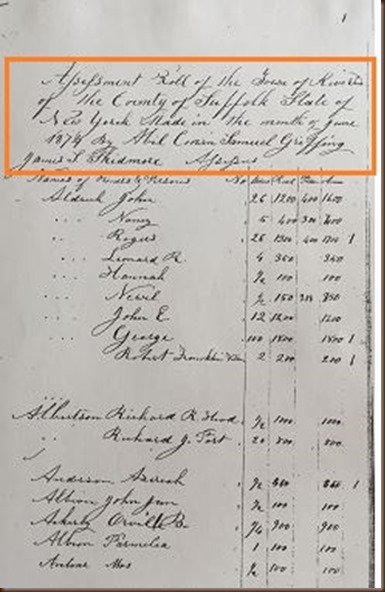 1
Assessment Roll of the Town of River
of the County of Suffolk State of
New York Made in the month of June
1874 By Abel Corwin Samuel Griffing
James L. Skidmore Assessors
Names of Owners & Persons No
Aldrich John 26 1200 400 1600
" Nancy 5 400 300 700
" Rogers 26 1300 400 1700 1
" Leonard R. 4 350 350
" Hannah ½ 100 100
" Nevil ½ 150
" John E 12 1200 1200
" George 100 1800 1800 1
Robert Franklin 2 200 200 1
Albertson Richard R. Hood ½ 100 100
" Richard J. Fort 20 800 800
Anderson ½ 1
Albin John Jun ½ 100 100
Ackerly Orville B. ¼ 900 900
Albin Parmelia 1 100 100
½ 100 100